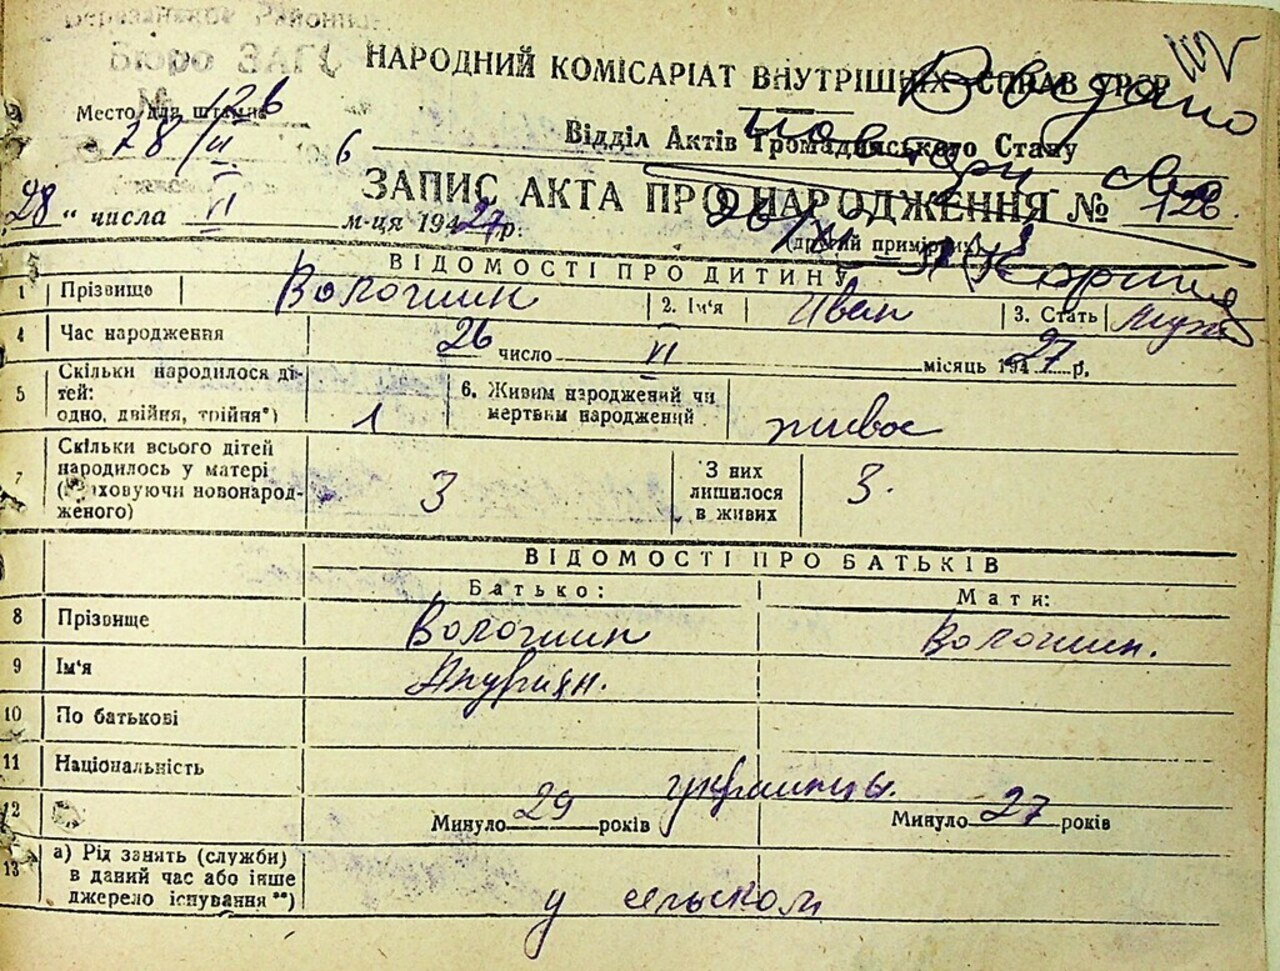 НАРОДНИЙ КОМІСАРІАТ ВНУТРІШНІХ СПРАВ УРСР
Видано
Место для штампа
126
повторн
Відділ Актів Громадянського Стану
28/VI 6
ЗАПИС АКТА ПРО НАРОДЖЕННЯ № 126.
28 " числа VI м-ця 194 27 р.
(другий примірник)
ВІДОМОСТІ ПРО ДИТИНУ
1 Прізвище Волошин 2. Ім'я Иван 3. Стать муж
4 Час народження 26 число VI місяць 194 27 р.
5 Скільки народилося ді-
тей:
одно, двійня, трійня*) 1
6. Живим народжений чи
мертвим народжений живое
7 Скільки всього дітей
народилось у матері
(враховуючи новонарод-
женого) 3
З них
лишилося
в живих 3.
ВІДОМОСТІ ПРО БАТЬКІВ
Батько: Мати:
8 Прізвище Волошин Волошин.
9 Ім'я
10 По батькові
11 Національність украинцы.
12 Минуло 29 років Минуло 27 років
13 а) Рід занять (служби)
в даний час або інше
джерело існування **) у сельском